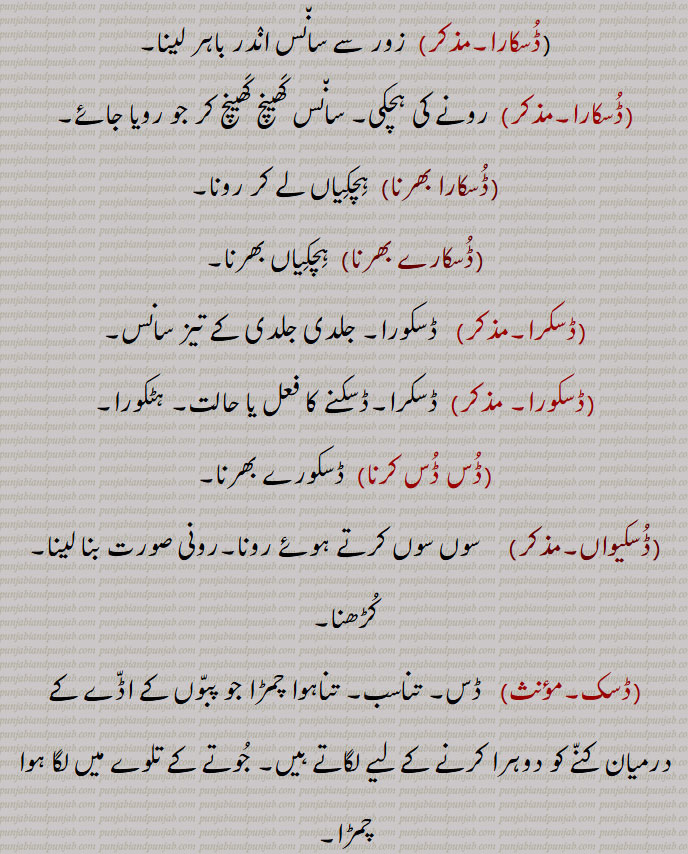 (ڈُسکارا۔مذکر) زور سے سانّس انّدر باہر لینا۔
(ڈُسکارا۔مذکر) رونے کی ہچکی۔ سانّس کَھینچ کَھینچ کر جو رویا جائے۔
(ڈُسکارا بھرنا) ہِچکِیاں لے کر رونا۔
(ڈُسکارے بھرنا) ہِچکِیاں بھرنا۔
(ڈسکرا۔مذکر) ڈسکورا۔ جلدی جلدی کے تیز سانس۔
(ڈسکورا۔ مذکر) ڈسکرا۔ڈسکنے کا فعل یا حالت۔ ہٹکورا۔
(ڈُس ڈُس کرنا) ڈسکورے بھرنا۔
(ڈُسکیواں۔مذکر) سوں سوں کرتے ہوئے رونا۔رونی صورت بنا لینا۔
کُڑھنا۔
(ڈسک۔مؤنث) ڈس۔ تناسب۔ تناہوا چمڑا جو پبّوں کے اڈّے کے
درمیان کنّے کو دوہرا کرنے کے لیے لگاتے ہیں۔ جُوتے کے تلوے میں لگا ہوا
چمڑا۔